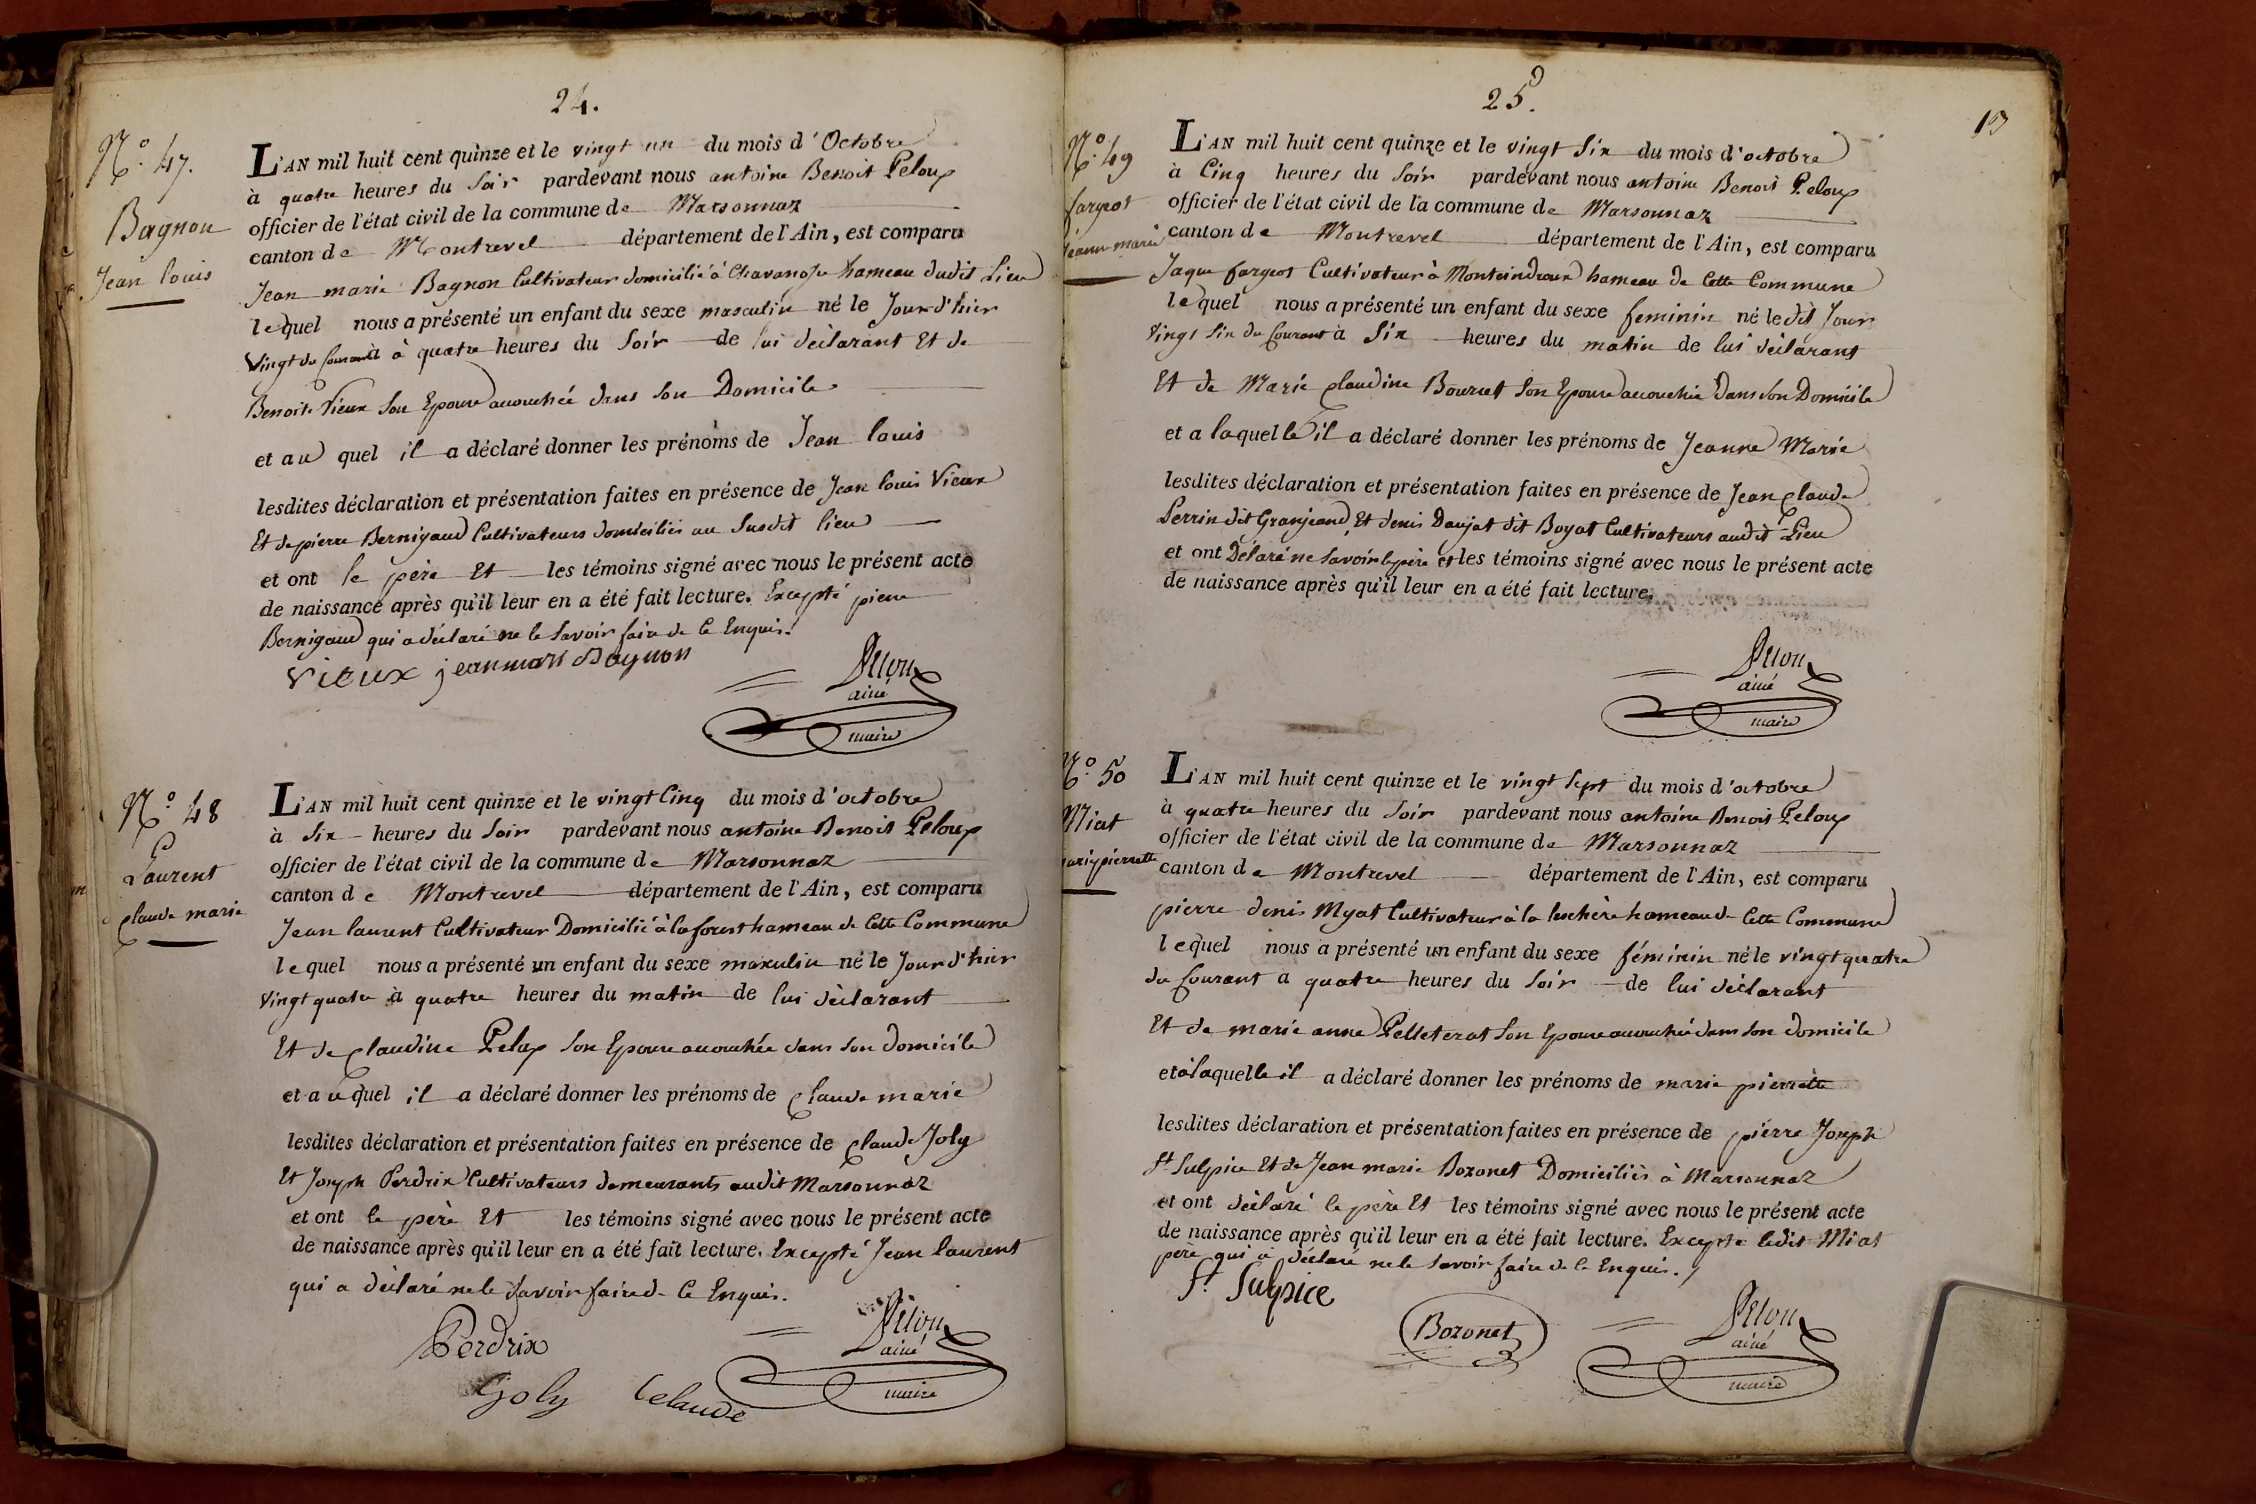 24.
N.° 47.
Bagnon
Jean louis
L'AN mil huit cent quinze et le vingt un du mois d'Octobre
à quatre heures du Soir pardevant nous antoine Benoit Peloux
officier de l'état civil de la commune de Marsonnaz
canton de Montrevel département de l'Ain, est comparu
Jean marie Bagnon Cultivateur domicilié à hameau dudit Lieu
lequel nous a présenté un enfant du sexe masculin né le Jour d'hier
vingt du Courant à quatre heures du Soir de lui déclarant Et de
Benoite Vieux Son Epouse accouchée dans Son Domicile
et au quel il a déclaré donner les prénoms de Jean louis
lesdites déclaration et présentation faites en présence de Jean louis Vieux
Et de pierre Bernigaud Cultivateurs domiciliés au Susdit lieu
et ont le père Et les témoins signé avec nous le présent acte
de naissance après qu'il leur en a été fait lecture. Excepté pierre
Bernigaud qui a déclaré ne le Savoir faire de Ce Enquis.
Vieux jeanmari Bagnon
ainé
maire
N.° 48
Laurent
Claude marie
L'AN mil huit cent quinze et le vingt Cinq du mois d'octobre
à Six heures du Soir pardevant nous antoine Benoit Peloux
officier de l'état civil de la commune de Marsonnaz
canton de Montrevel département de l'Ain, est comparu
Jean laurent Cultivateur Domicilié à la forest hameau de Cette Commune
lequel nous a présenté un enfant du sexe masculin né le Jour d'hier
vingt quatre à quatre heures du matin de lui déclarant
Et de Claudine Son Epouse accouchée dans Son domicile
et auquel il a déclaré donner les prénoms de Claude marie
lesdites déclaration et présentation faites en présence de Claude Joly
Et Joseph Perdrix Cultivateurs demeurants audit Marsonnaz
et ont le père Et les témoins signé avec nous le présent acte
de naissance après qu'il leur en a été fait lecture. Excepté Jean laurent
qui a déclaré ne le Savoir faire de Ce Enquis.
Perdrix
Joly Celaude
ainé
maire
25.
N.° 49
fargeot
Jeanne marie
L'AN mil huit cent quinze et le vingt Six du mois d'octobre
à Cinq heures du Soir pardevant nous antoine Benoit Peloux
officier de l'état civil de la commune de Marsonnaz
canton de Montrevel département de l'Ain, est comparu
Jaque fargeot Cultivateur à hameau de Cette Commune
lequel nous a présenté un enfant du sexe feminin né ledit Jour
vingt Six du Courant à Six heures du matin de lui déclarant
Et de Marie Claudine Son Epouse accouchée Dans Son Domicile
et a laquelle il a déclaré donner les prénoms de Jeanne Marie
lesdites déclaration et présentation faites en présence de Jean Claude
Perrin dit Granjeand Et denis Daujat dit Boyat Cultivateurs audit Lieu
et ont Déclaré ne Savoir le père et les témoins signé avec nous le présent acte
de naissance après qu'il leur en a été fait lecture.
ainé
maire
N.° 50
Miat
marie pierrette
L'AN mil huit cent quinze et le vingt Sept du mois d'octobre
à quatre heures du Soir pardevant nous antoine Benoit Peloux
officier de l'état civil de la commune de Marsonnaz
canton de Montrevel département de l'Ain, est comparu
pierre denis Myat Cultivateur à la leschère hameau de Cette Commune
lequel nous a présenté un enfant du sexe féminin né le vingt quatre
du Courant a quatre heures du Soir de lui déclarant
Et de marie anne Pelleterat Son Epouse accouchée dans Son domicile
et à laquelle il a déclaré donner les prénoms de marie pierrette
lesdites déclaration et présentation faites en présence de pierre Joseph
St Sulpice Et de Jean marie Bozonet Domiciliés à Marsonnaz
et ont déclaré le père Et les témoins signé avec nous le présent acte
de naissance après qu'il leur en a été fait lecture. Excepté ledit Miat
père qui a déclaré ne le Savoir faire de Ce Enquis.
St. Sulpice
Bozonet
ainé
maire